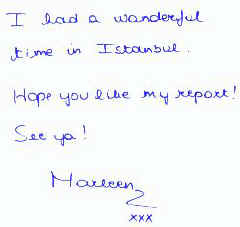 I had a wonderful
time in Istanbul.
Hope you like my report!
See ya!
Marleen
xxx